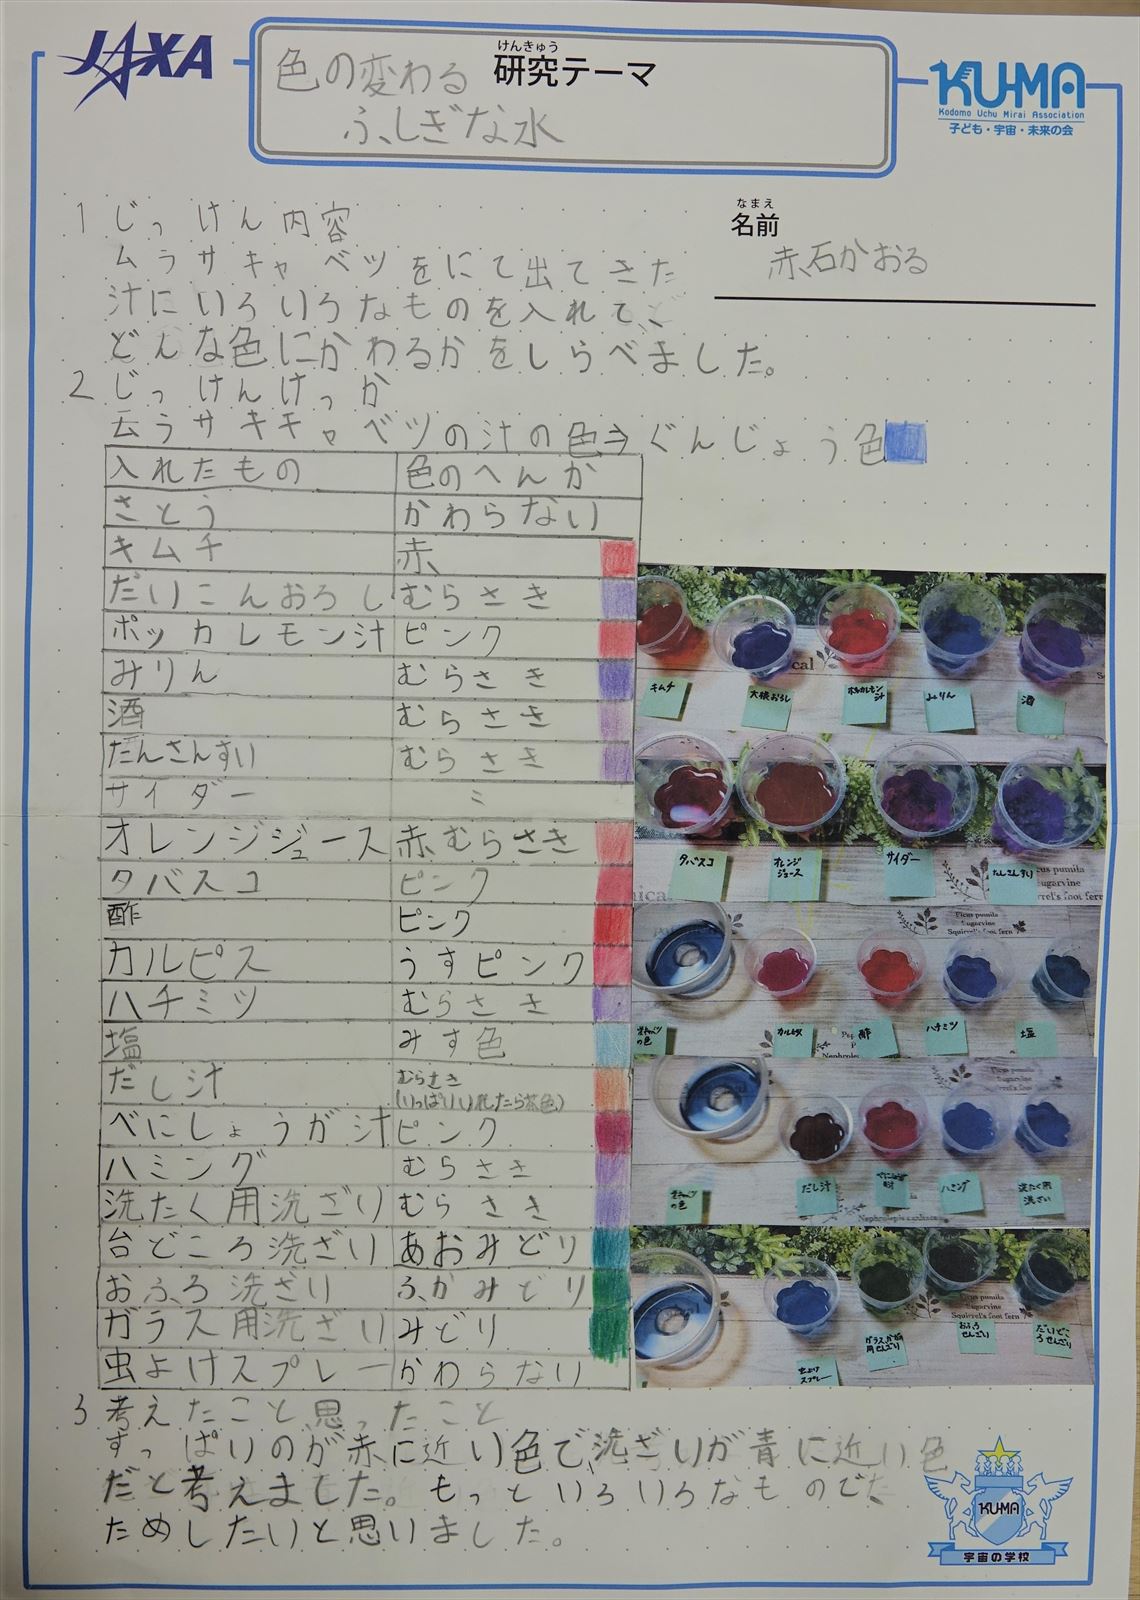 JAXA
けんきゅう
研究テーマ
色の変わる
ふしぎな水
KU-MA
Kodomo Uchu Mirai Association
子ども・宇宙・未来の会
なまえ
名前
赤石かおる
1 じっけん内容
ムラサキャベツをにて出てきた
汁にいろいろなものを入れて、
どんな色にかわるかをしらべました。
2 じっけんけっか
ムラサキキャベツの汁の色⇒ぐんじょう色
入れたもの 色のへんか
さとう かわらない
キムチ 赤
だいこんおろし むらさき
ポッカレモン汁 ピンク
みりん むらさき
酒 むらさき
たんさんすい むらさき
サイダー 〃
オレンジジュース 赤むらさき
タバスコ ピンク
酢 ピンク
カルピス うすピンク
ハチミツ むらさき
塩 みず色
だし汁 むらさき
(いっぱいいれたら茶色)
べにしょうが汁 ピンク
ハミング むらさき
洗たく用洗ざい むらさき
台どころ洗ざい あおみどり
おふろ洗ざい ふかみどり
ガラス用洗ざい みどり
虫よけスプレー かわらない
キムチ
大根おろし
ポッカレモン汁
みりん
酒
タバスコ
オレンジ
ジュース
サイダー
たんさんすい
Ficus pumila
Eugarvine
Squirrel's foot fern
の色
カルピス
酢
ハチミツ
塩
の色
だし汁
ハミング
洗たく用
洗ざい
虫よけ
スプレー
おふろ
せんざい
だいどこ
ろせんざい
3 考えたこと思ったこと
すっぱいのが赤に近い色で、洗ざいが青に近い色
だと考えました。もっといろいろなものでた
ためしたいと思いました。
KU-MA
宇宙の学校